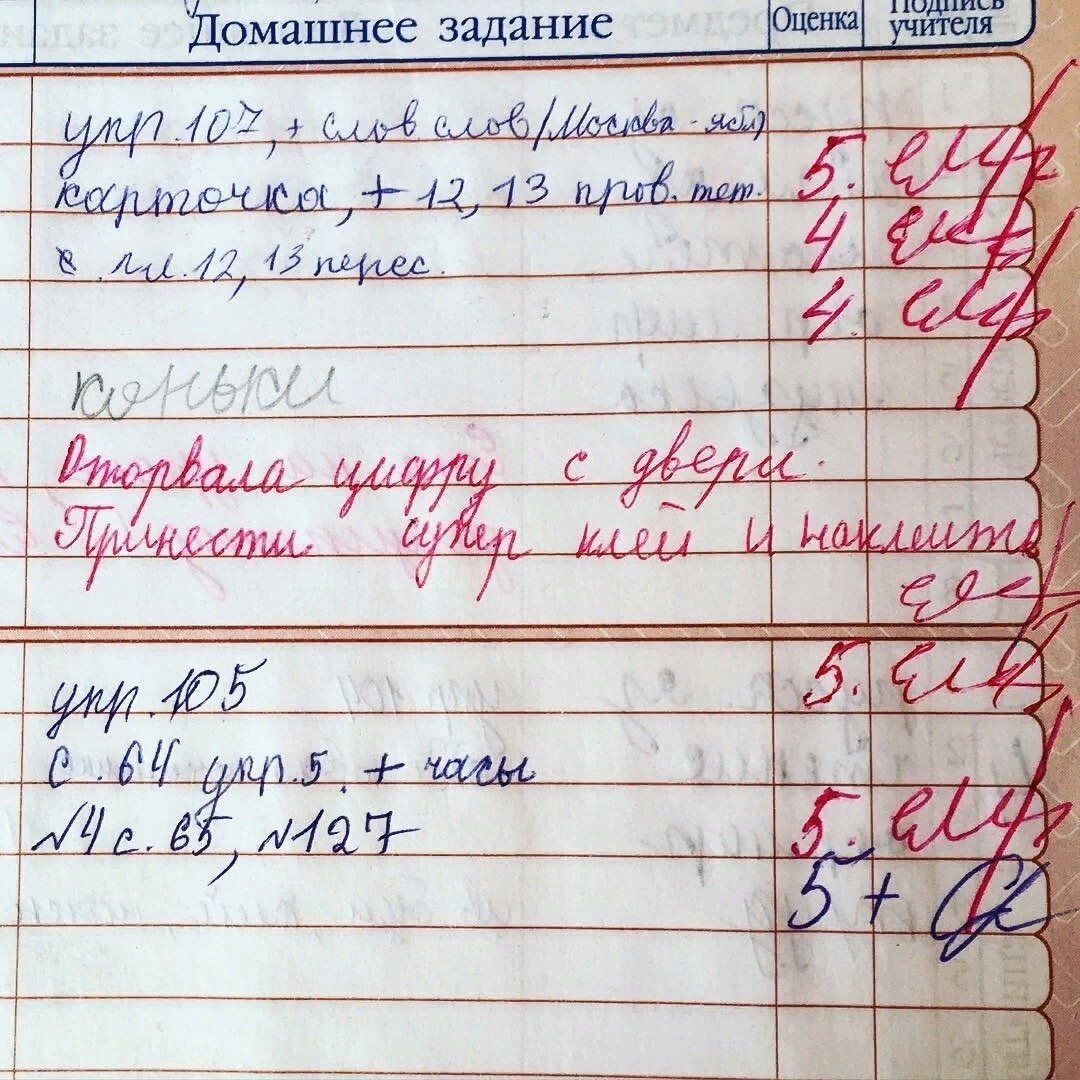 Домашнее задание Оценка Подпись учителя
упр.107, + слов слов (Москва - ябл)
карточка, + 12, 13 пров. тет. 5.
4
с. 12, 13 перес.
4.
коньки
Оторвала цифру с двери.
Принести супер клей и наклеить
упр.105 5.
с.64 упр.5. + часы
№4 с.65, №127 5.
5+